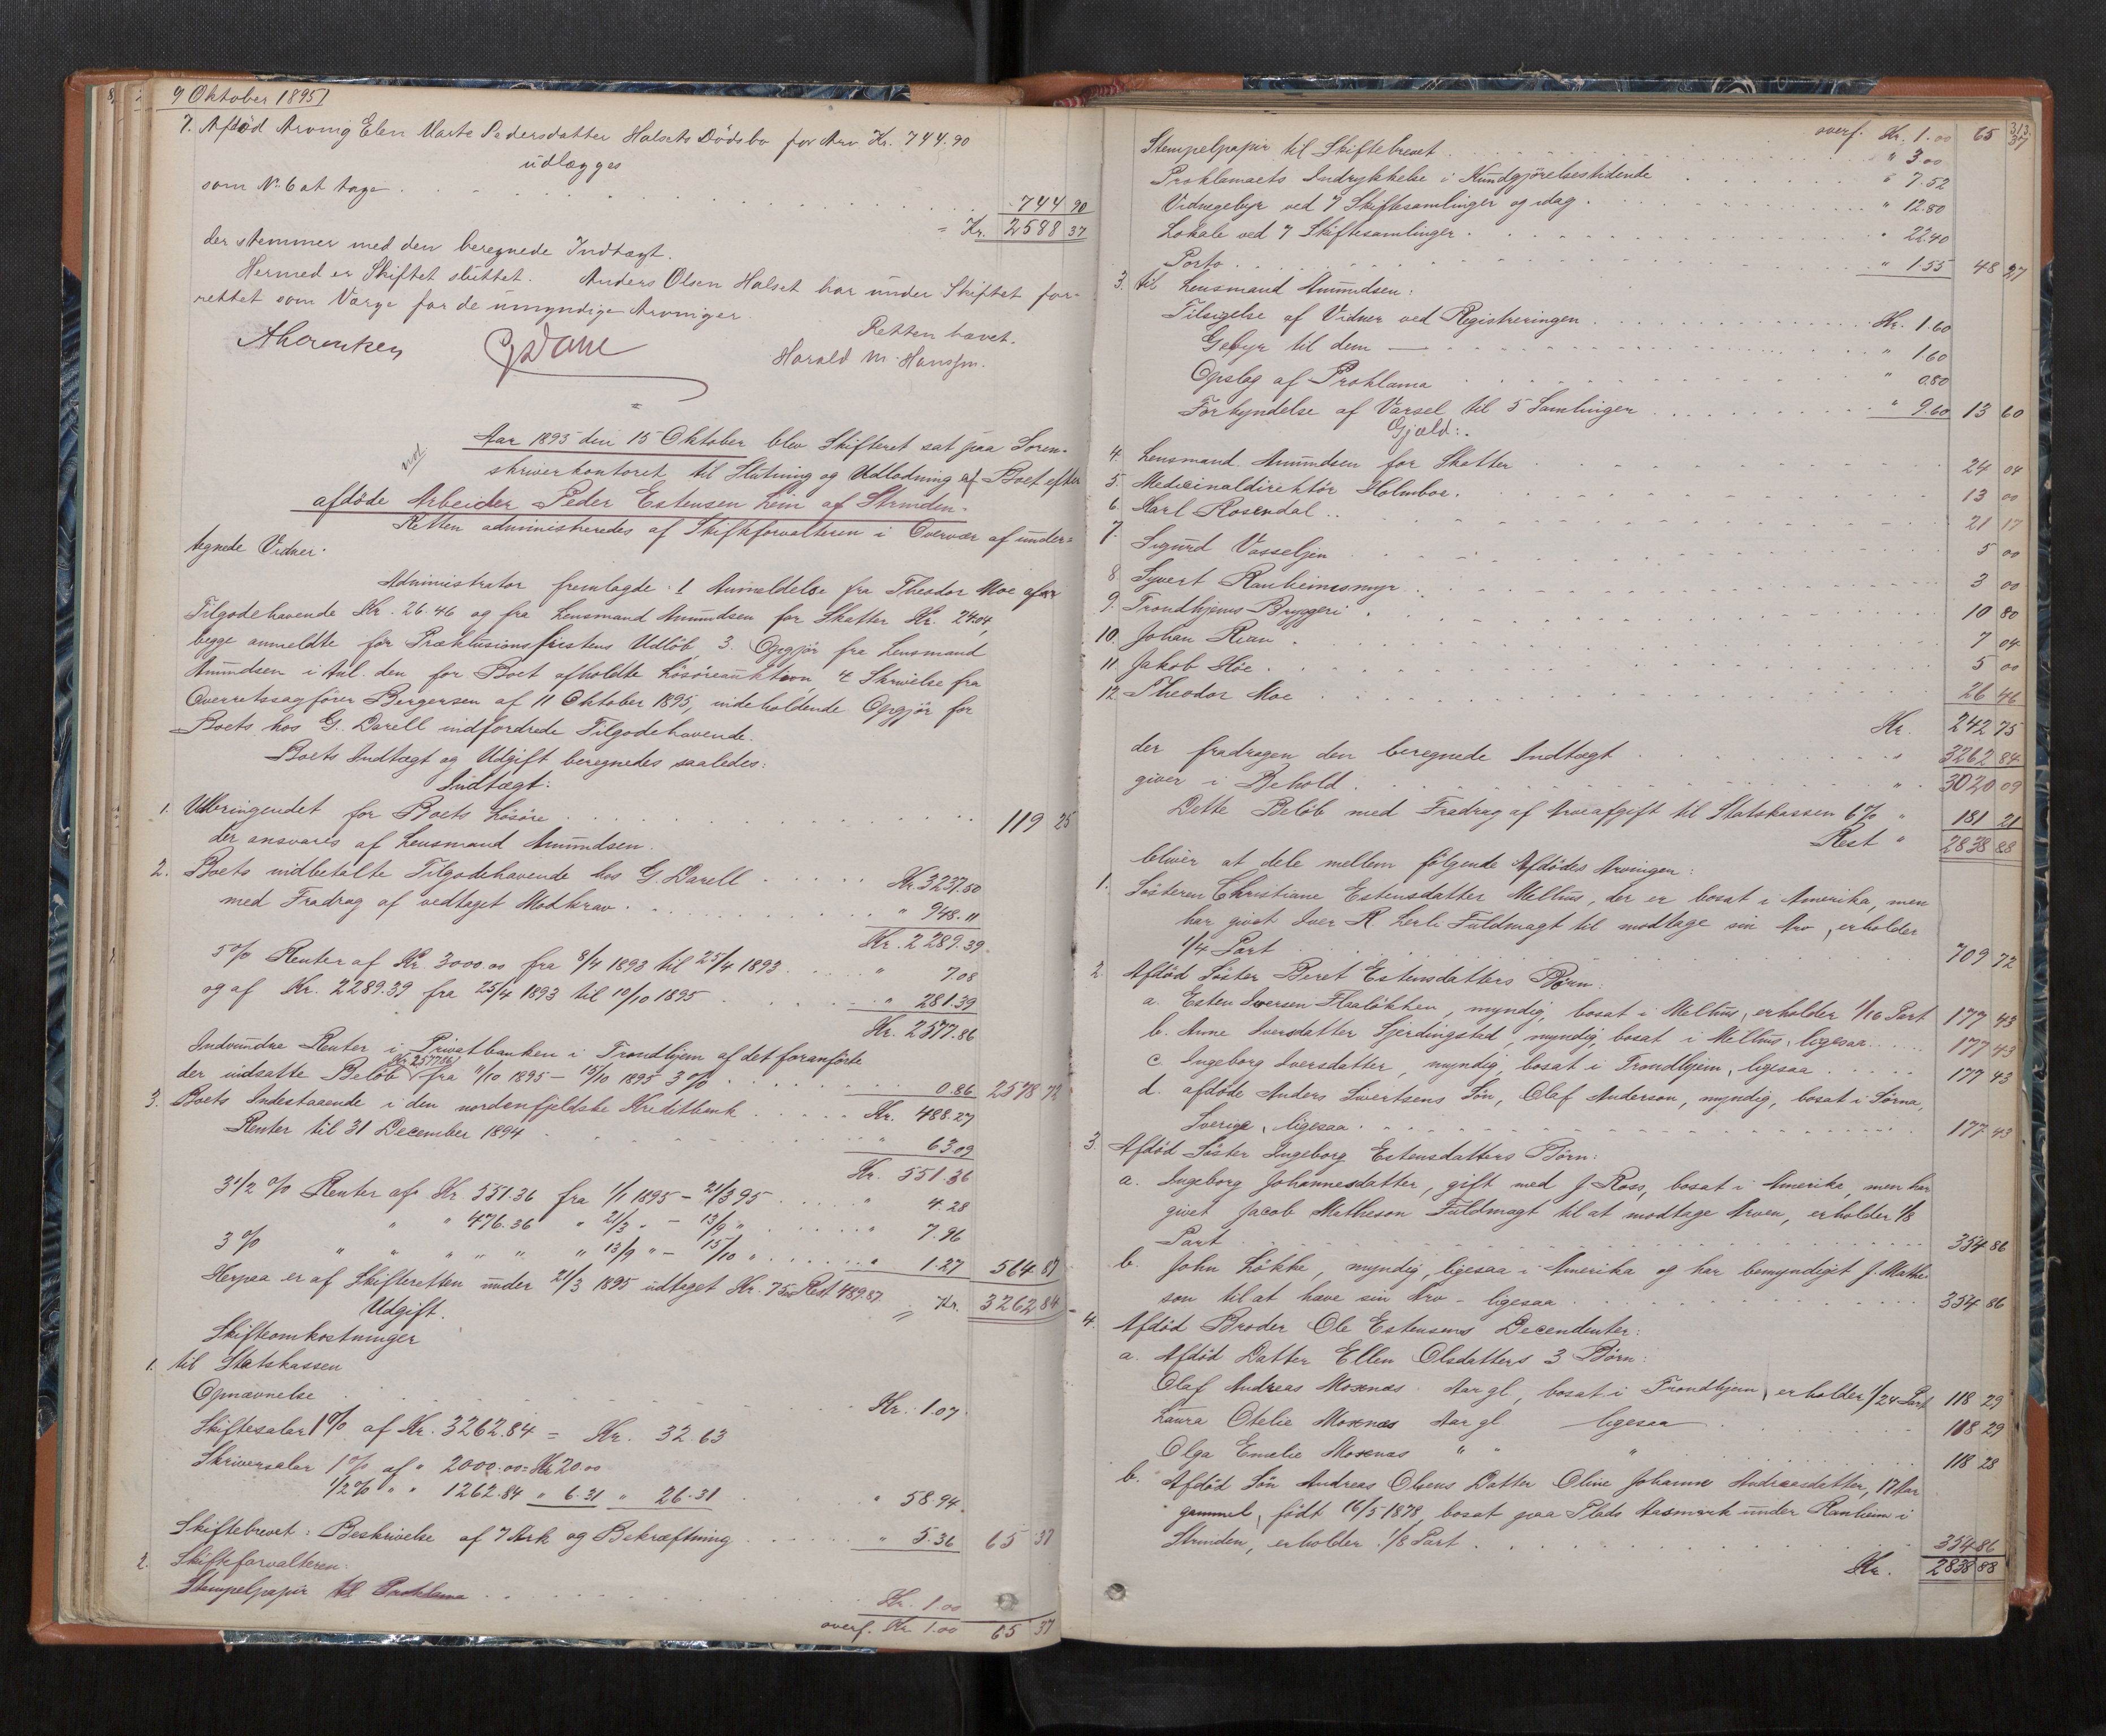 9 Oktober 1895
7. Afdöd Arving Elen Marte Pedersdatter Halsets Dödsbo for Arv Kr. 744.90
udlægges
som No. 6 at tage . . . . 744 90
= Kr. 2588 37
der stemmer med den beregnede Indtægt.
Hermed er Skiftet sluttet. Anders Olsen Halset har under Skiftet for-
rettet som Værge for de umyndige Arvinger.
Retten hævet.
Harald M. Hansen.
Aar 1895 den 15 Oktober blev Skifteret sat paa Soren-
skriverkontoret til Slutning og Udlodning af Boet efter
afdöde Arbeider Peder Estensen Leim af Strinden.
Retten administreredes af Skifteforvalteren i Overvær af under-
tegnede Vidner.
Administrator fremlagde: 1 Anmeldelse fra Theodor Moe for
Tilgodehavende Kr. 26.46 og fra Lensmand Amundsen for Skatter Kr. 24.04,
begge anmeldte för Præklusionsfristens Udlöb, 3. Opgjör fra Lensmand
Amundsen i Anl. den for Boet afholdte Lösöreauktion 4 Skrivelse fra
Overretssagförer Bergersen af 11 Oktober 1895, indeholdende Opgjör for
Boets hos G. Darell indfordrede Tilgodehavende.
Boets Indtægt og Udgift beregnedes saaledes:
Indtægt:
1. Udbringendet for Boets Lösöre . . . . 119 25
der ansvares af Lensmand Amundsen.
2. Boets indbetalte Tilgodehavende hos G. Darell . . . . Kr. 3237.50
med Fradrag af vedtaget Modkrav . . . . " 948.11
Kr. 2289.39
5 % Renter af Kr. 3000.00 fra 8/4 1893 til 25/4 1893 . . . . " 7.08
og af Kr. 2289.39 fra 25/4 1893 til 10/10 1895 . . . . " 281.39
Kr. 2577.86
Indvundne Renter i Privatbanken i Trondhjem af det foranförte
der indsatte Belöb Kr. 2577.86 fra 11/10 1895 - 15/10 1895 3 % . . . . 0.86 2578 72
3. Boets Indestaaende i den nordenfjeldske Kreditbank . . . . Kr. 488.27
Renter til 31 December 1894 . . . . " 63.09
Kr. 551.36
3 1/2 % Renter af Kr. 551.36 fra 1/1 1895 - 21/3 95 . . . . " 4.28
" " 476.36 " 21/3 " - 13/9 " . . . . " 7.96
3 % " " " " " " 13/9 " - 15/10 " . . . . " 1.27 564 87
Herpaa er af Skifteretten under 21/3 1895 udtaget Kr. 75.00 Rest 489.87.
= Kr. 3262 84
Udgift.
Skifteomkostninger
1. til Statskassen
Opnævnelse . . . . Kr. 1.07
Skiftesalær 1 % af Kr. 3262.84 = Kr. 32.63
Skriversalær 1 % af " 2000.00 = Kr 20.00
1/2 % " " 1262.84 " 6.31 " 26.31 . . . . " 58.94
Skiftebrevet: Beskrivelse af 7 Ark og Bekræftning . . . . " 5.36 65 37
2. Skifteforvalteren:
Stempelpapir til Proklama . . . . Kr. 1.00
overf. Kr 1.00 65 37
313.
overf. Kr. 1.00 65 37
Stempelpapir til Skiftebrevet . . . . " 3.00
Proklamaets Indrykkelse i Kundgjörelsestidende . . . . " 7.52
Vidnegebyr ved 7 Skiftesamlinger og idag . . . . " 12.80
Lokale ved 7 Skiftesamlinger . . . . " 22.40
Porto . . . . " 1.55 48 27
3. til Lensmand Amundsen:
Tilsigelse af Vidner ved Registreringen . . . . Kr. 1.60
Gebyr til dem — . . . . " 1.60
Opslag af Proklama . . . . " 0.80
Forkyndelse af Varsel til 5 Samlinger . . . . " 9.60 13 60
Gjæld:
4. Lensmand Amundsen for Skatter . . . . 24 04
5. Medicinaldirektör Holmboe . . . . 13 00
6. Karl Rosendal . . . . 21 17
7. Sigurd Vasseljen . . . . 5 00
8. Syvert Ranheimsmyr . . . . 3 00
9. Trondhjems Bryggeri . . . . 10 80
10. Johan Rian . . . . 7 04
11. Jakob Höe . . . . 5 00
12. Theodor Moe . . . . 26 46
Kr. 242 75
der fradragen den beregnede Indtægt . . . . " 3262 84
giver i Behold . . . . " 3020 09
Dette Belöb med Fradrag af Arveafgift til Statskassen 6 % " 181 21
Rest " 2838 88
bliver at dele mellem fölgende Afdödes Arvinger:
1. Sösteren Christiane Estensdatter Melhus, der er bosat i Amerika, men
har givet Iver R. Lerli Fuldmagt til modtage sin Arv, erholder
1/4 Part . . . . 709 72
2. Afdöd Söster Beret Estensdatters Börn:
a. Esten Iversen Flaalökken, myndig, bosat i Melhus, erholder 1/16 Part 177 43
b. Anne Iversdatter Gjerdingstad, myndig, bosat i Melhus, ligesaa . . . . 177 43
c. Ingeborg Iversdatter, myndig, bosat i Trondhjem, ligesaa . . . . 177 43
d. afdöde Anders Sivertsens Sön, Olaf Anderson, myndig, bosat i Sörna,
Sverige, ligesaa . . . . 177 43
3. Afdöd Söster Ingeborg Estensdatters Börn:
a. Ingeborg Johannesdatter, gift med J. Ross, bosat i Amerika, men har
givet Jacob Matheson Fuldmagt til at modtage Arven, erholder 1/8
Part . . . . 354 86
b. John Lökke, myndig, ligesaa i Amerika og har bemyndiget J. Mathe-
son til at hæve sin Arv - ligesaa . . . . 354 86
4. Afdöd Broder Ole Estensens Decendenter:
a. Afdöd Datter Ellen Olsdatters 3 Börn:
Olaf Andreas Moxnæs Aar gl, bosat i Trondhjem, erholder 1/24 Part 118 29
Laura Otelie Moxnæs Aar gl ligesaa . . . . 118 29
Olga Emelie Moxnæs " " " . . . . 118 28
b. Afdöd Sön Andreas Olsens Datter Oline Johanne Andreasdatter, 17 Aar
gammel, födt 16/5 1878, bosat paa Plads Aasmark under Ranheim i
Strinden, erholder 1/8 Part . . . . 354 86
Kr. 2838 88